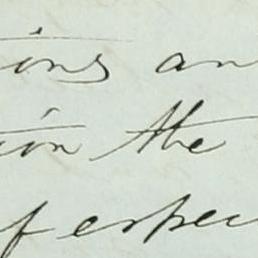 ions an
ion the
f espec